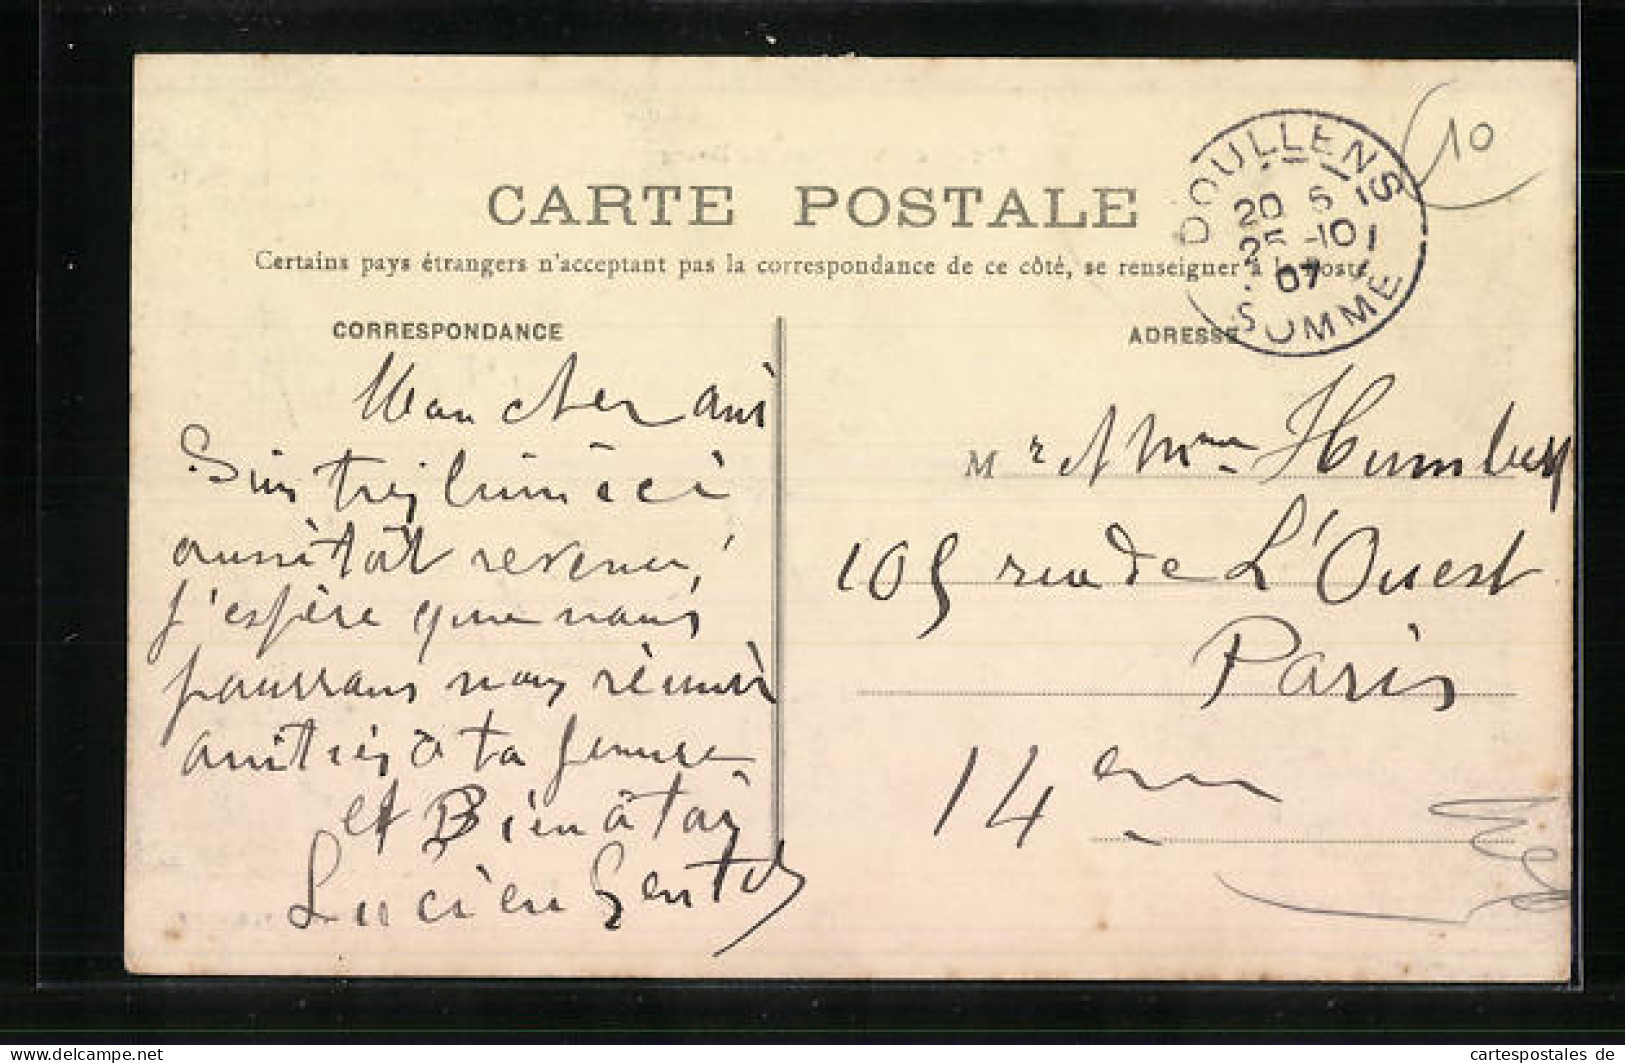 10
DOULLENS
20 6 10
25 -10
07
SOMME
CARTE POSTALE
Certains pays étrangers n'acceptant pas la correspondance de ce côté, se renseigner à la Poste
CORRESPONDANCE
Mon cher ami
aussitôt revenu,
j'espère que nous
pourrons nous réunir
amitiés à ta femme
et Bien à toi
Lucien
ADRESSE
Mr et Mme Humbert
105 rue de L'Ouest
Paris
14 em
cartespostales de
www.cartespostales.de/cpa